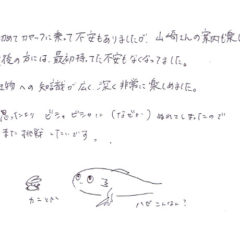 初めてカヤックに乗って不安もありましたが、山崎さんの案内も楽し
後の方には、最初持てた不安もなくなってました。
生物への知識が広く、深く非常に楽しめました。
思ったより ビシャビシャに（なぜか）ぬれてしまったので
また挑戦したいです。
カニとハゼ
ハゼこんなん？